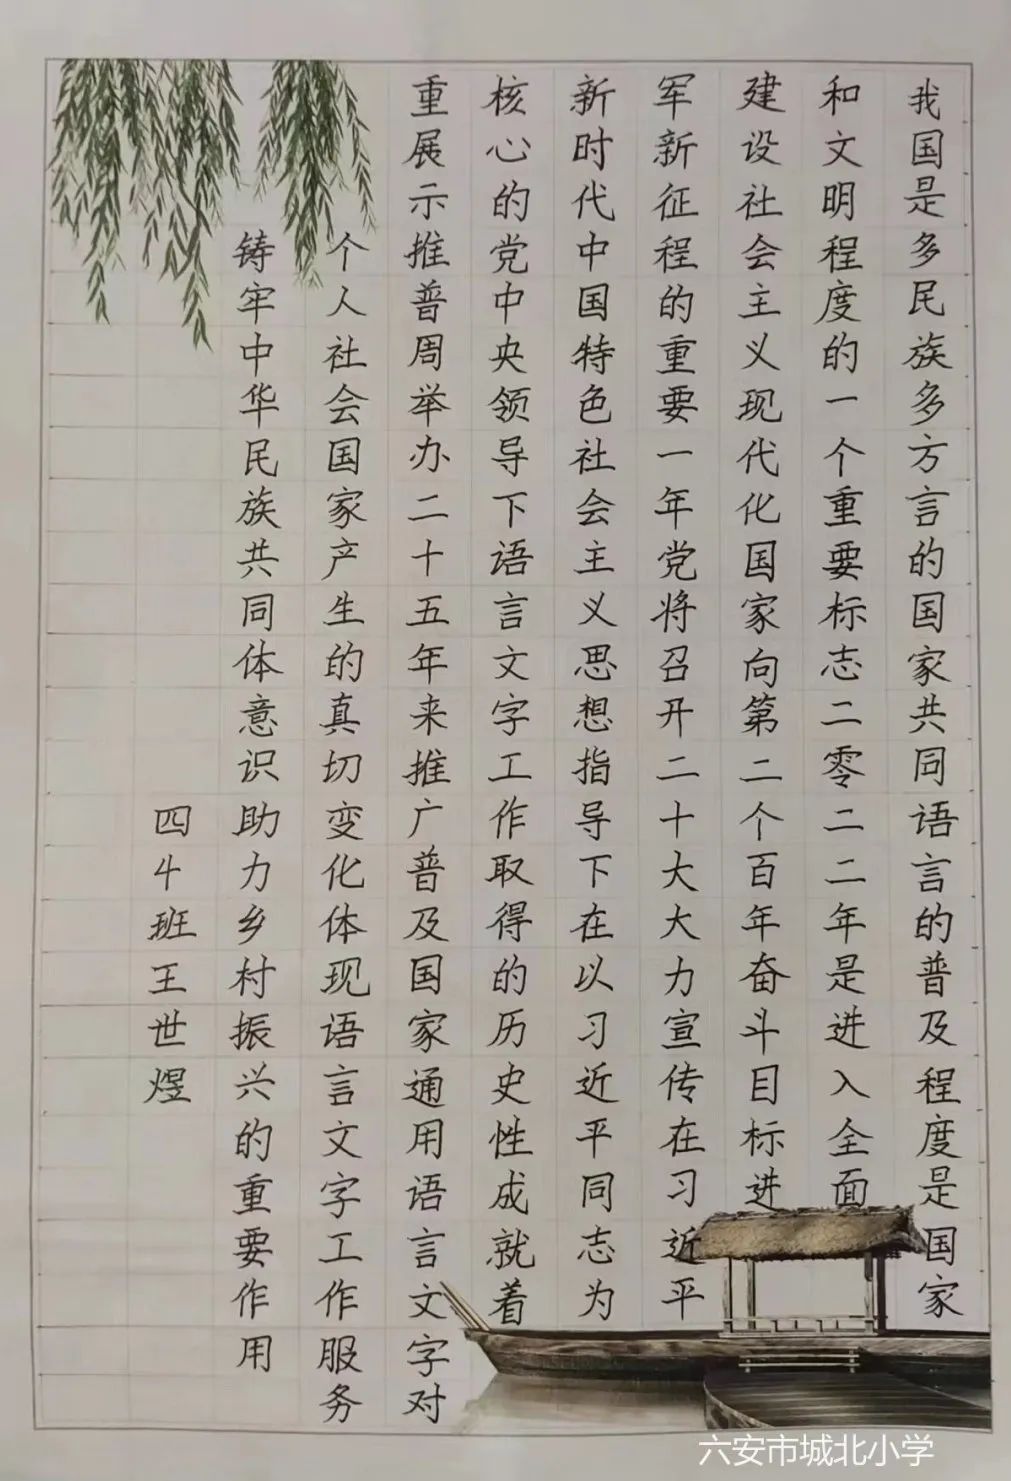 我国是多民族多方言的国家共同语言的普及程度是国家
和文明程度的一个重要标志二零二二年是进入全面
建设社会主义现代化国家向第二个百年奋斗目标进
军新征程的重要一年党将召开二十大大力宣传在习近平
新时代中国特色社会主义思想指导下在以习近平同志为
核心的党中央领导下语言文字工作取得的历史性成就着
重展示推普周举办二十五年来推广普及国家通用语言文字对
个人社会国家产生的真切变化体现语言文字工作服务
铸牢中华民族共同体意识助力乡村振兴的重要作用
四4班王世煜
六安市城北小学